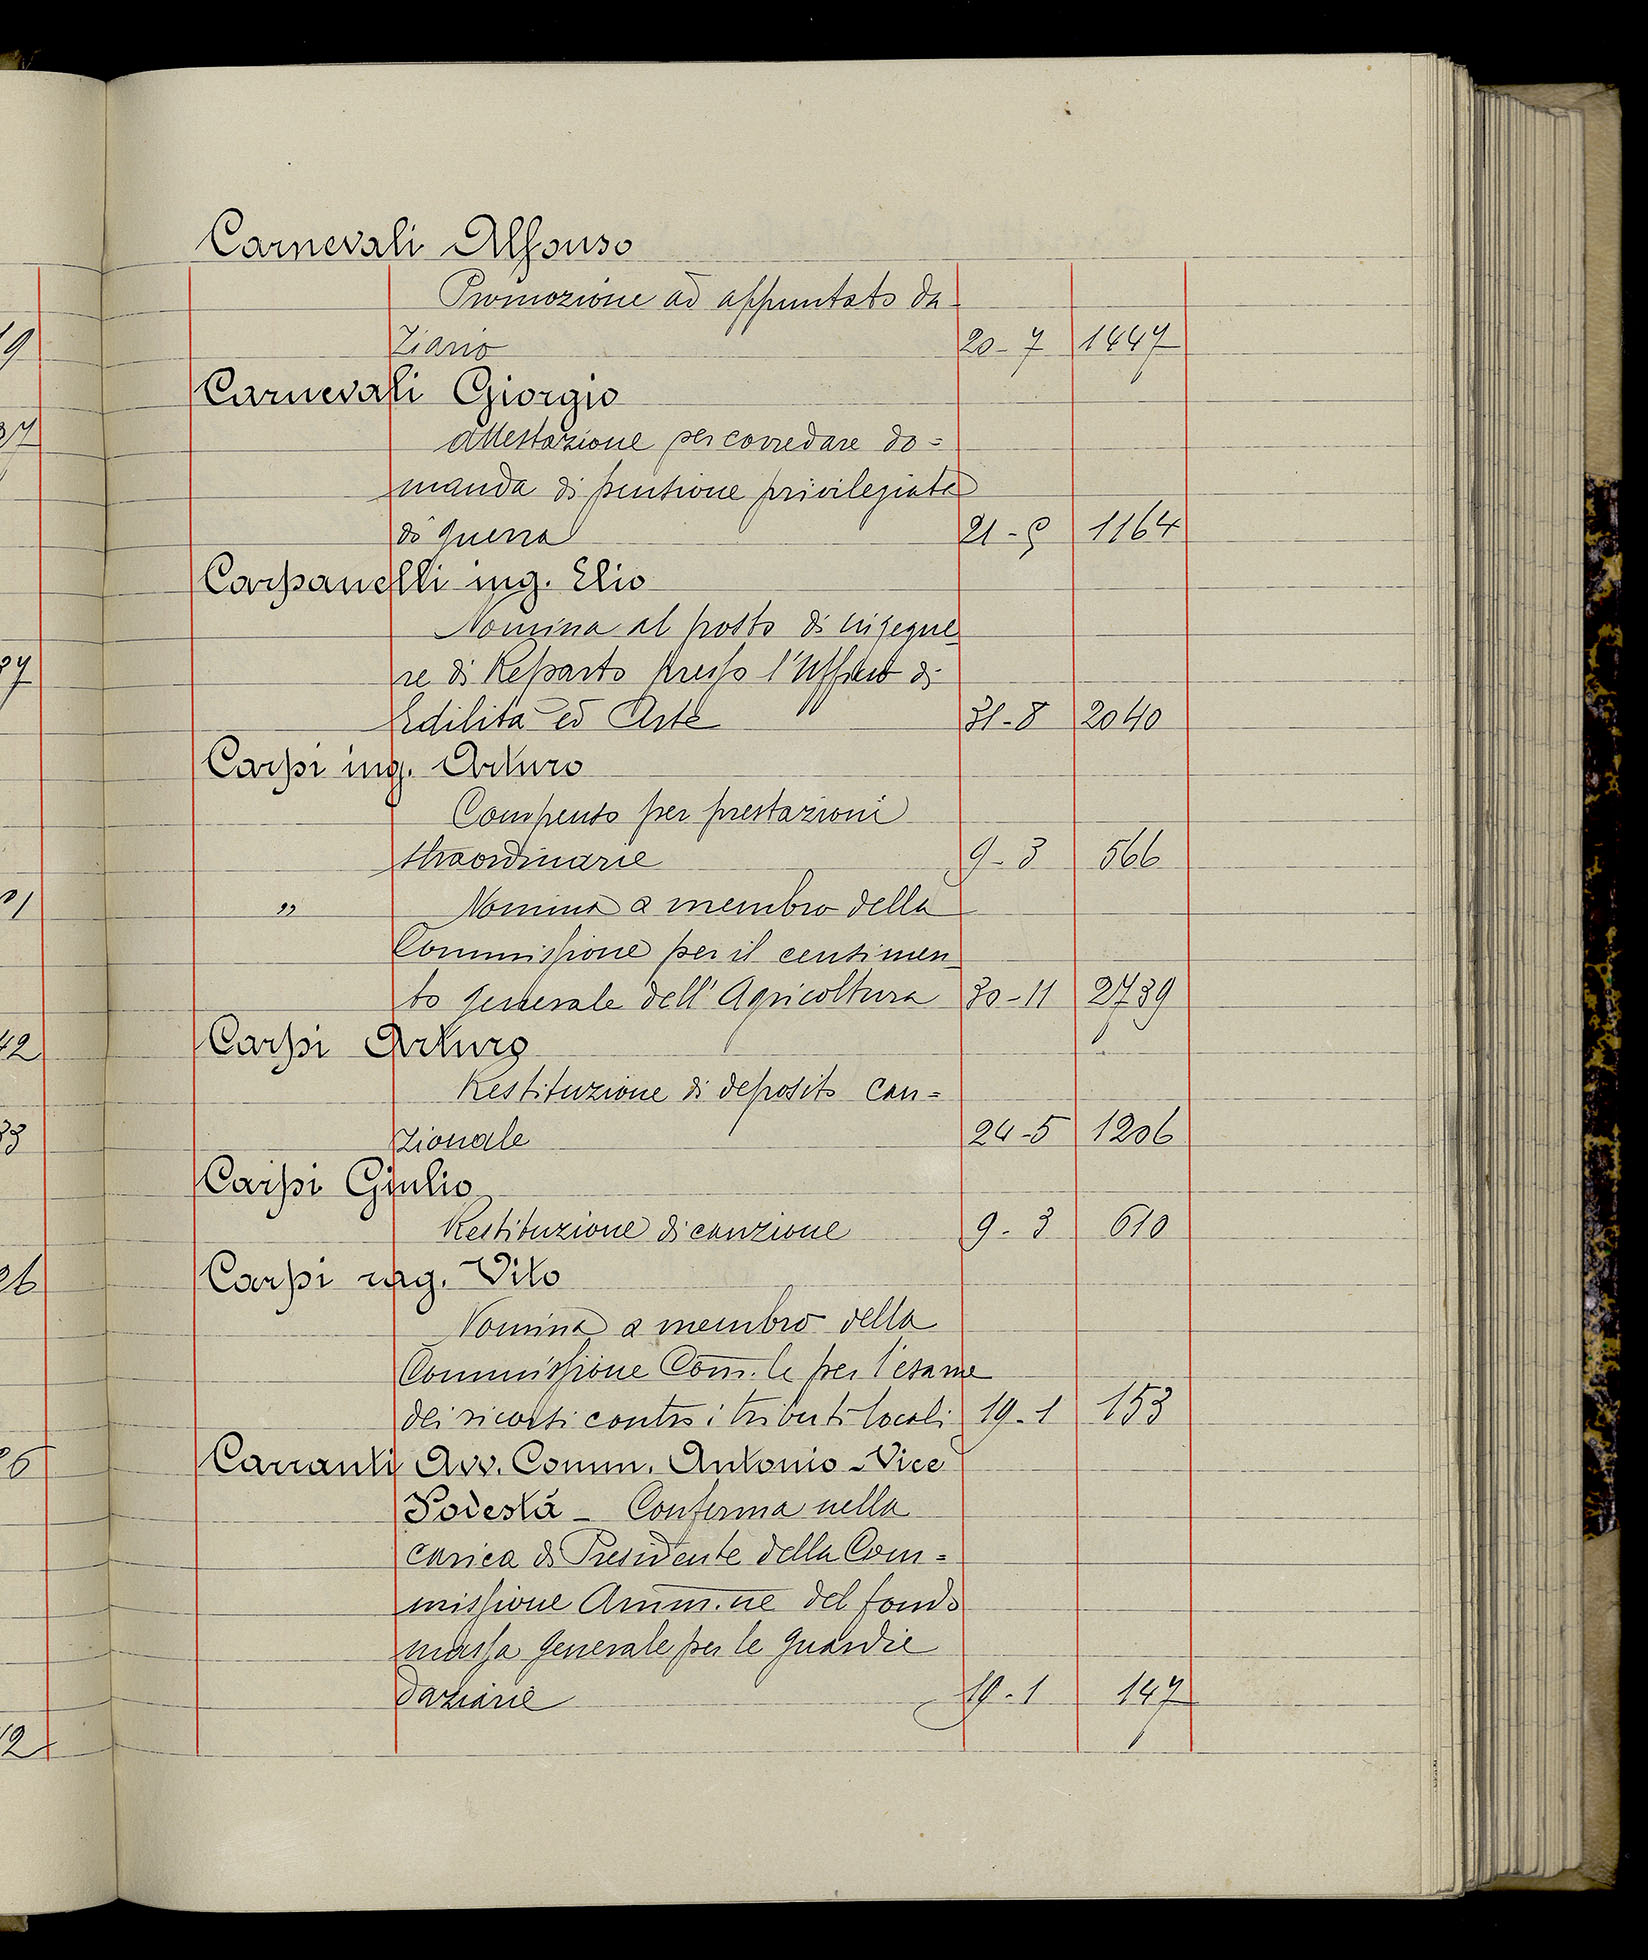 Carnevali Alfonso
Promozione ad appuntato da
ziario 20-7 1447
Carnevali Giorgio
attestazione per corredare do=
manda di pensione privilegiata
di guerra 1164
Carpanelli ing. Elio
Nomina al posto di ingegne
re di Reparto presso l'Ufficio di
Edilità ed Arte 31-8 2040
Carpi ing. Arturo
Compenso per prestazioni
straordinarie 9-3 566
" Nomina a membro della
Commissione per il censimen
to generale dell'Agricoltura 30-11 2739
Carpi Arturo
Restituzione di deposito cau=
zionale 24-5 1206
Carpi Giulio
Restituzione di cauzione 9-3 610
Carpi rag. Vito
Nomina a membro della
Commissione Com.le per l'esame
dei ricorsi contro i tributi locali 19-1 153
Carranti Avv. Comm. Antonio - Vice
Podestà - Conferma nella
carica di Presidente della Com=
missione Amm.ne del fondo
massa generale per le guardie
daziarie 19-1 147
19
37
37
42
26